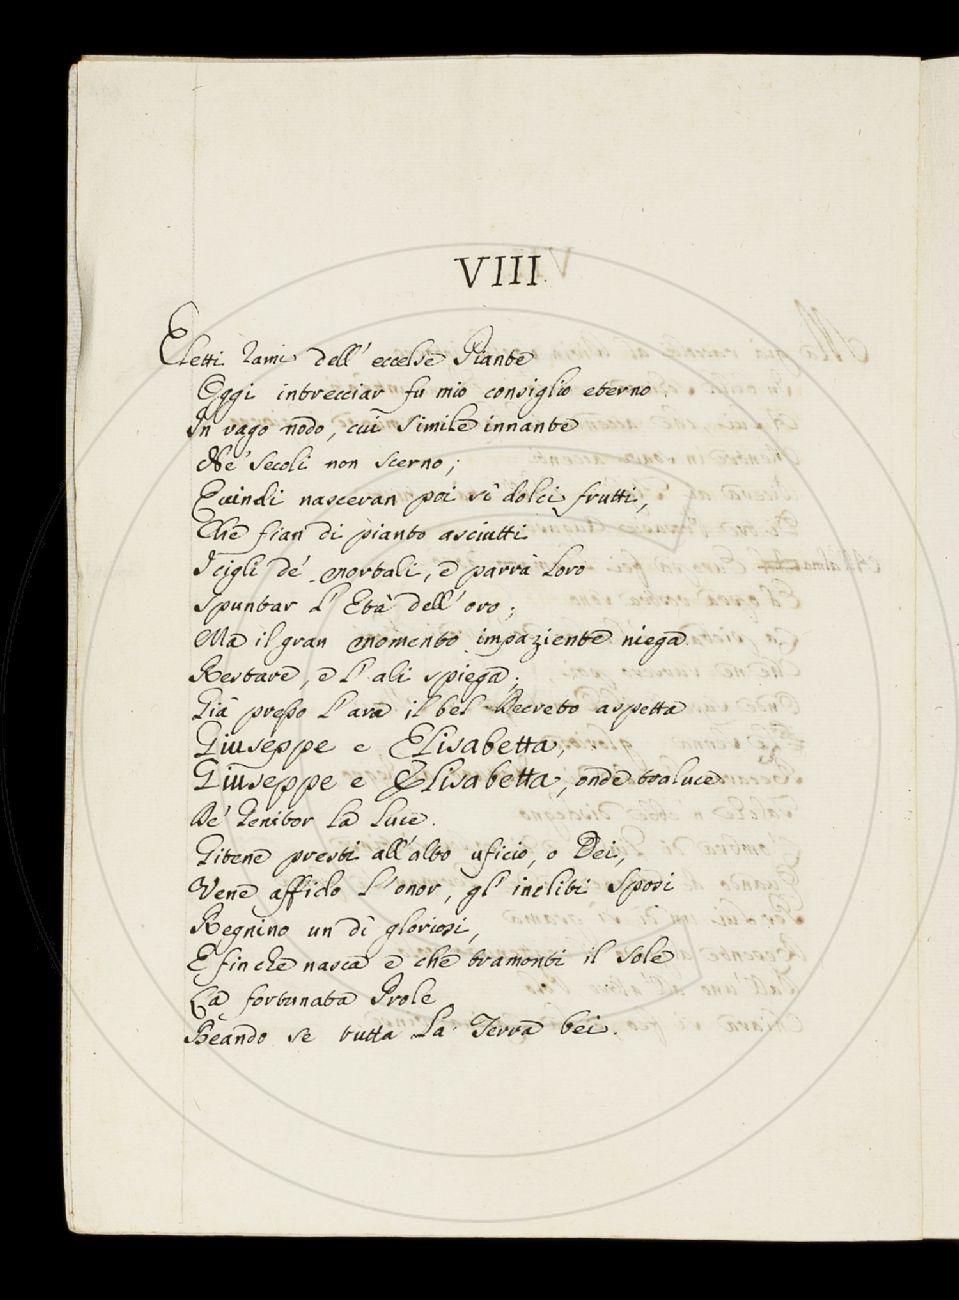 VIII
Eletti rami dell' eccelse Piante
Oggi intrecciar fu mio consiglio eterno
In vago nodo, cui simile innante
Ne' secoli non scerno;
Quindi nasceran poi sì dolci frutti,
Che fian di pianto asciutti
I cigli de' mortali, e parrà loro
Spuntar l' Età dell' oro;
Ma il gran momento impaziente niega
Restare, e l' ali spiega;
Già presso l' ara il bel Decreto aspetta
Giuseppe e Elisabetta,
Giuseppe e Elisabetta, onde traluce
De' Genitor la luce.
Gitene presti all' alto uficio, o Dei,
Vene affido l' onor, gl' incliti Sposi
Regnino un dì gloriosi,
E fin che nasca e che tramonti il Sole
La fortunata Prole
Beando se tutta la Terra bei.